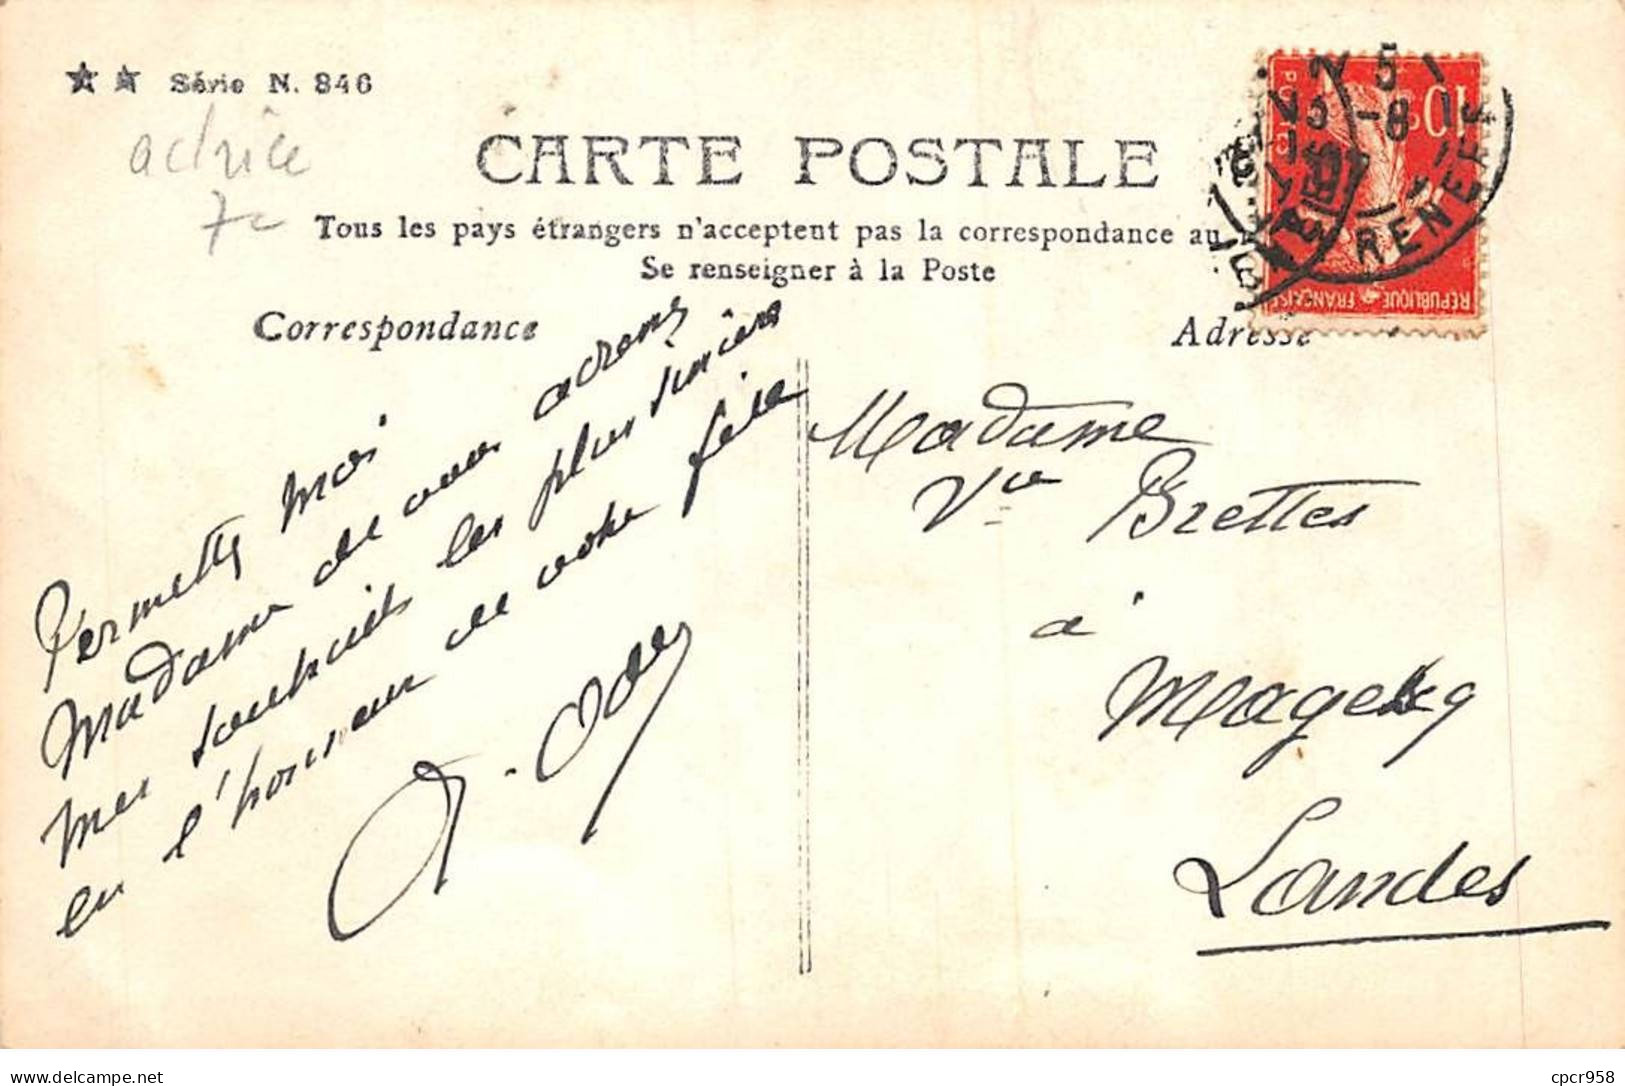 ★ ★ Série N. 846
actrice
7c
CARTE POSTALE
Tous les pays étrangers n'acceptent pas la correspondance au
Se renseigner à la Poste
Correspondance
Adresse
Permettez moi
Madame de vous adresser
mes souhaits les plus sincères
en l'honneur de votre fête
Madame
Vve Brettes
à
Magescq
Landes
10c
POSTES
RÉPUBLIQUE FRANÇAISE
delcampe.net
cpcr958